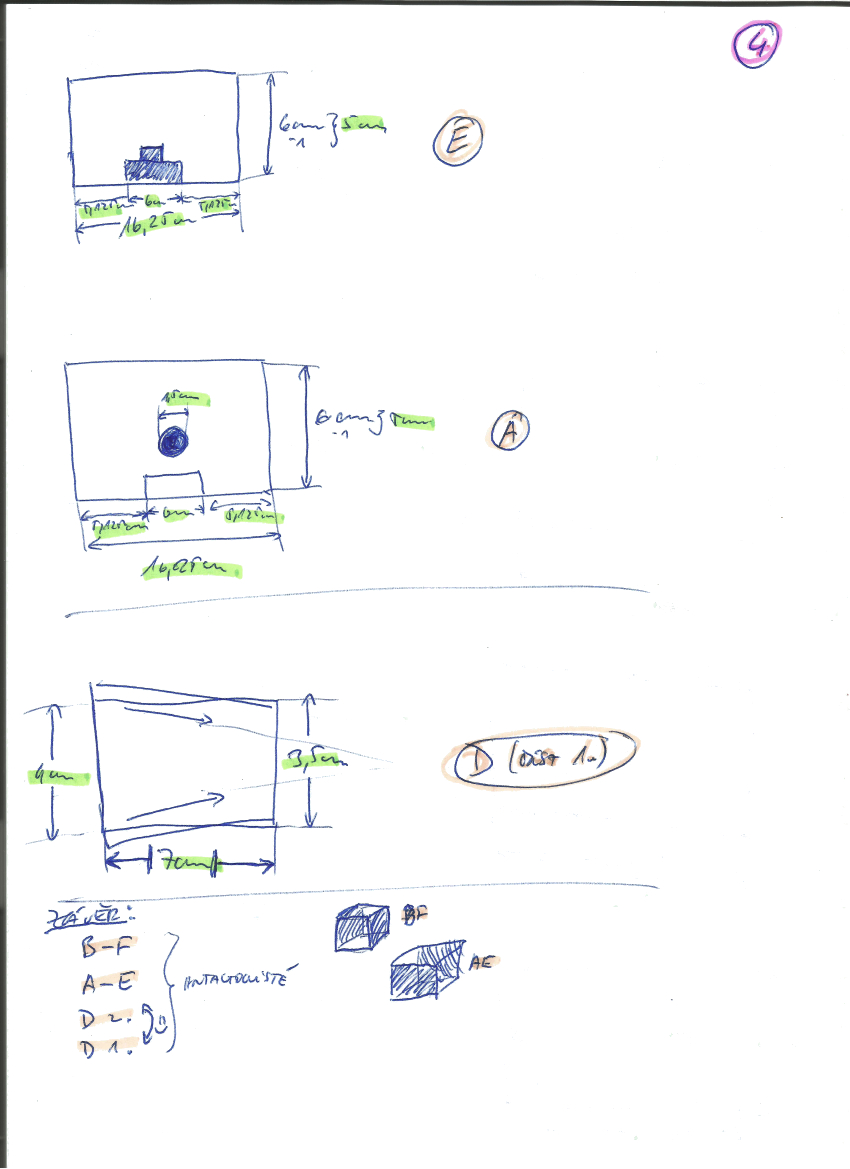 4
6cm } 5cm
-1
E
5,125cm 6cm 5,125cm
16,25cm
1,5cm
6cm } 5cm
-1
A
5,125cm 6cm 5,125cm
16,25cm
4cm
3,5cm
D (část 1.)
7cm
ZÁVĚR:
B-F
BF
A-E
AE
D 2.
D 1.